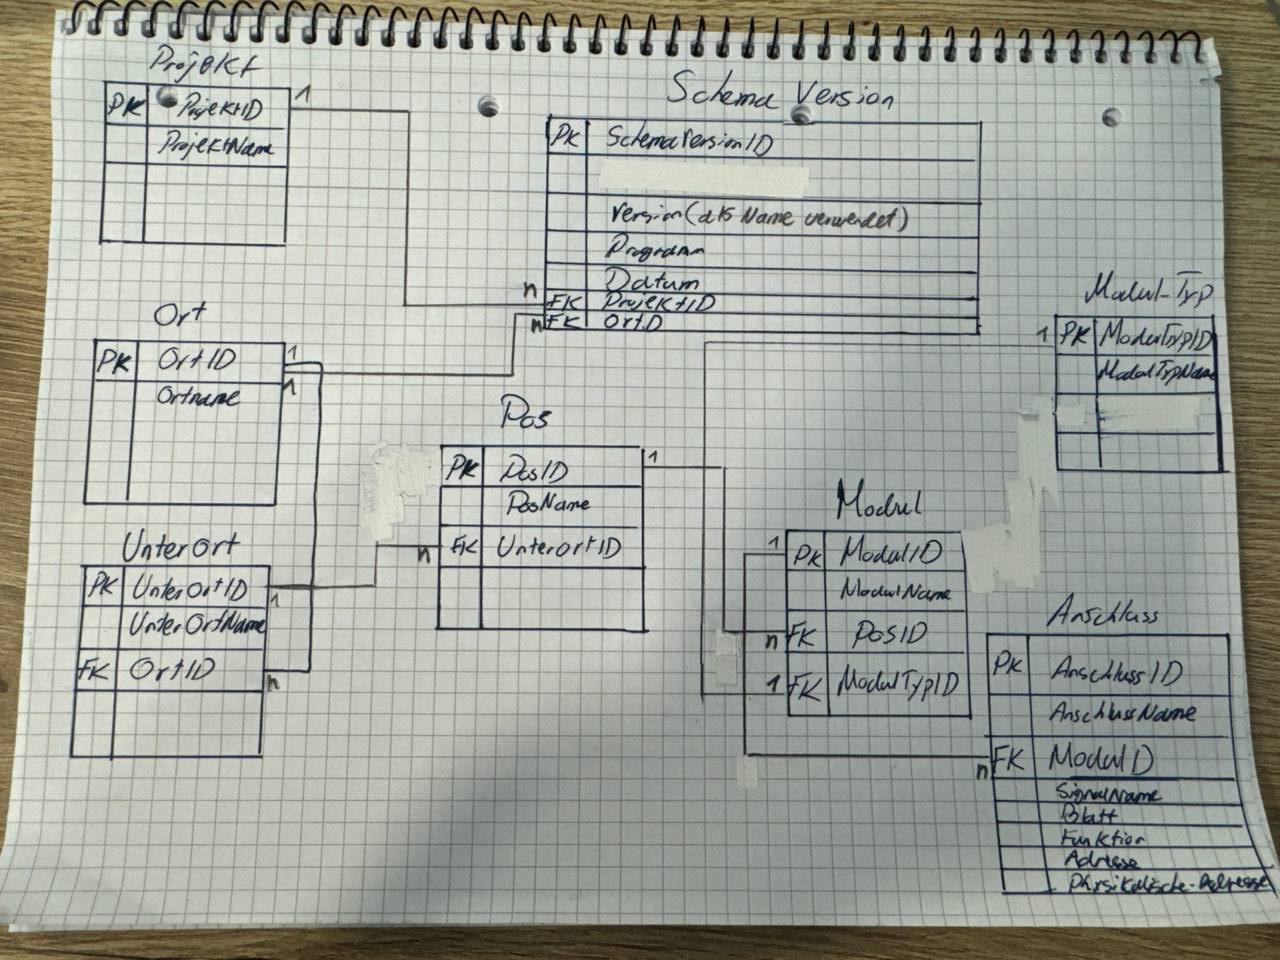 Projekt
PK ProjektID 1
ProjektName
Schema Version
PK SchemaVersionID
Version (als Name verwendet)
Programm
Datum
n FK ProjektID
n FK OrtID
Modul-Typ
1 PK ModulTypID
ModulTypName
Ort
PK OrtID 1
1
Ortname
Pos
PK PosID 1
PosName
n FK UnterortID
UnterOrt
PK UnterOrtID 1
UnterOrtName
FK OrtID n
Modul
1 PK ModulID
ModulName
n FK PosID
1 FK ModulTypID
Anschluss
PK AnschlussID
AnschlussName
n FK ModulID
SignalName
Blatt
Funktion
Adresse
Physikalische-Adresse